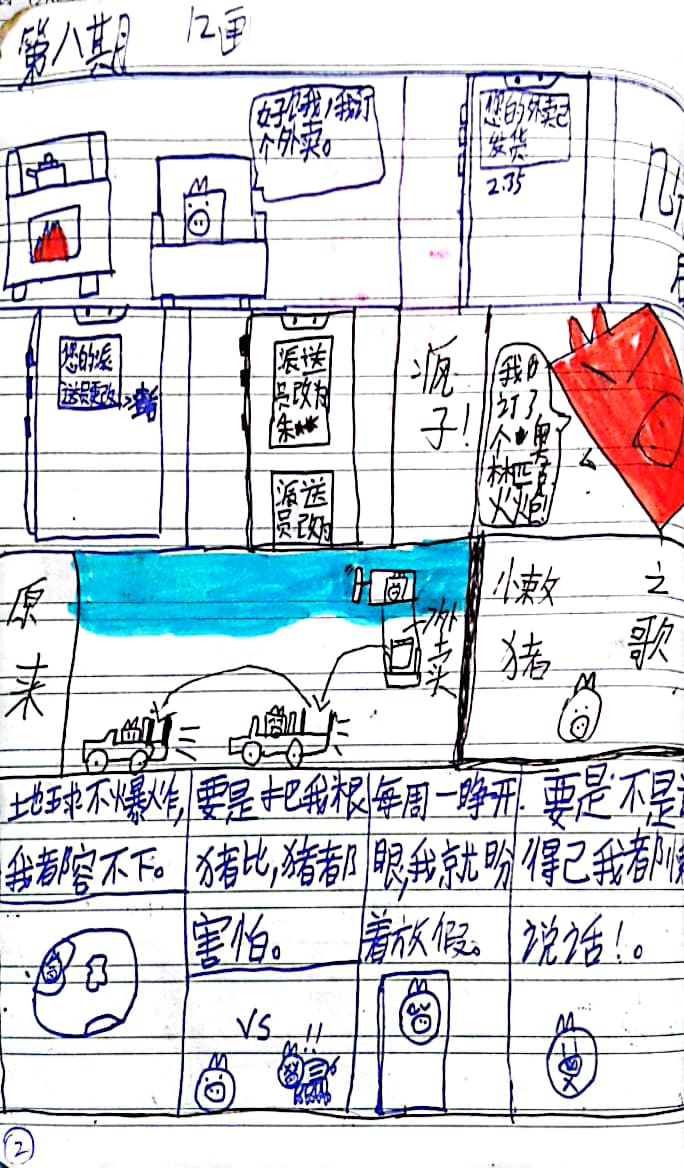 第八期 12画
好饿我,我订
个外卖。
您的外卖已
发货
2.35
您的派
送员更改
派送
员改为
朱**
派送
员改为
疯
子!
我
订了
个
林匹克
火炮!
原
来
外卖
小懒
猪
之
歌
地球不爆炸,
我都容不下。
要是把我根
猪比,猪都
害怕。
VS
!!
每周一睁开
眼,我就盼
着放假。
要是不是
得已我都懒
说话!。
2